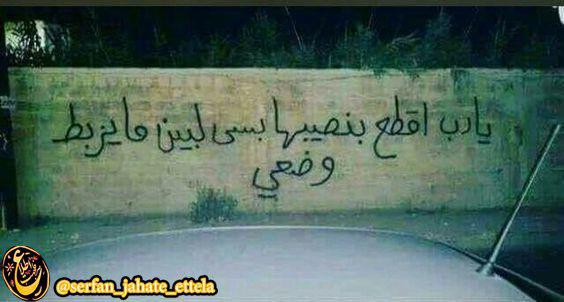 يارب اقطع بنصيبها بس لبين ما يزبط
وضعي
@serfan_jahate_ettela